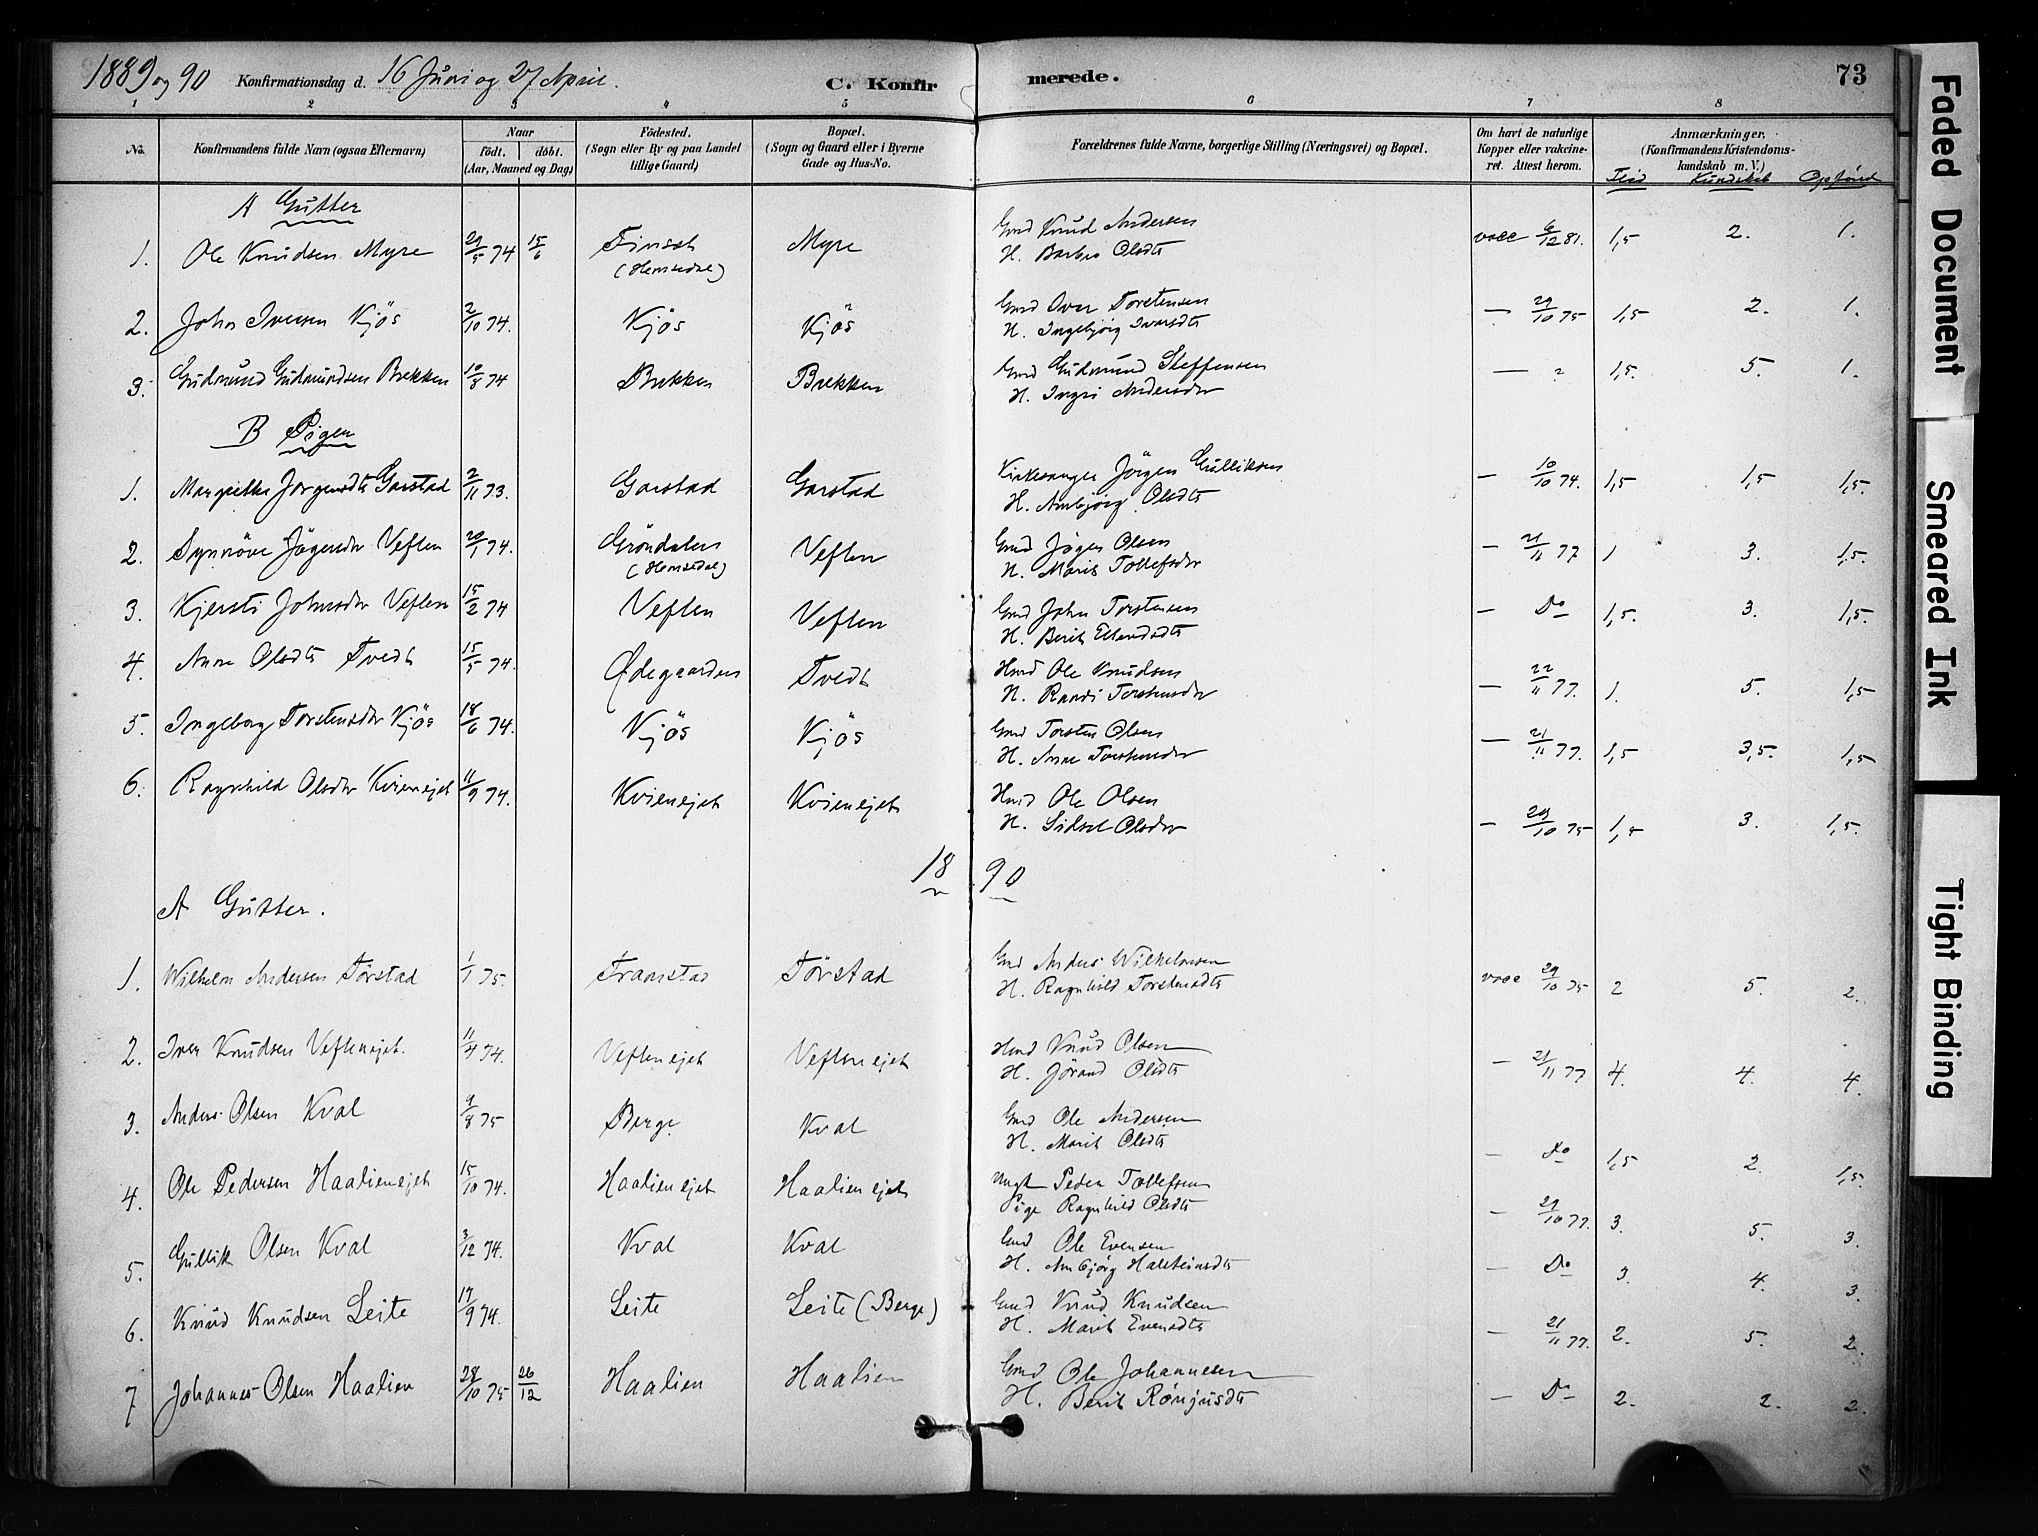 1889 og 90 Konfirmationsdag d. 16 Juni og 27 April. C. Konfir merede. 73
1 2 3 4 5 6 7 8
No. Konfirmandens fulde Navn (ogsaa Efternavn) Naar født. døbt. (Aar, Maaned og Dag) Fødested. (Sogn eller By og paa Landet tillige Gaard) Bopæl. (Sogn og Gaard eller i Byerne Gade og Hus-No. Forældrenes fulde Navne, borgerlige Stilling (Næringsvei) og Bopæl. Om havt de naturlige Kopper eller vaccineret. Attest herom. Anmærkninger. (Konfirmandens Kristendomskundskab m. V.)
Flid Kundskab Opførsel
A Gutter
1. Ole Knudsen Myre 29/5 74 15/6 (Hemsedal) Myre Gmd Knud Andersen vacc 6/12 81. 1,5 2. 1.
H. Barbro Olsdtr
2. John Iversen Kjös 2/10 74. Kjös Kjös Gmd Iver Torstensen — 29/10 75 1,5 2. 1.
H. Ingebjörg Ivarsdtr
3. Gudmund Gudmundsen Brekken 10/8 74 Brekken Brekken Gmd Gudmund Steffensen — ? 1,5. 5. 1.
H. Ingri Andersdtr
B Piger
1. Margrethe Jörgensdtr Garstad 2/11 73. Garstad Garstad Kirkesanger Jörgen Gulliksen — 10/10 74. 1,5 1,5 1,5.
H. Ambjörg Olsdtr
2. Synnöve Jögensdtr Veflen 20/1 74. Gröndalen (Hemsedal) Veflen Gmd Jögen Olsen — 21/11 77 1 3. 1,5.
H. Marit Tollefsdtr
3. Kjersti Johnsdtr Veflen 15/2 74 Veflen Veflen Gmd John Torstensen — Do 1,5. 3. 1,5.
H. Berit Ellendsdtr
4. Anne Olsdtr Tvedt 15/5 74. Ødegaarden Tvedt Hmd Ole Knudsen — 22/11 77. 1. 5. 1,5
H. Randi Torstensdtr
5. Ingeborg Torstensdtr Kjös 18/6 74. Kjös Kjös Gmd Torsten Olsen — 21/11 77. 1,5 3,5. 1,5
H. Anne Torstensdtr
6. Ragnhild Olsdtr Kvienejet 11/9 74. Kvienejet Kvienejet Hmd Ole Olsen — 29/10 75 1,5 3. 1,5.
H. Sidsel Olsdtr
18 90
A Gutter.
1. Wilhelm Andersen Törstad 1/1 75. Framstad Törstad Gmd Anders Wilhelmsen vacc 29/10 75 2 5. 2.
H. Ragnhild Torstensdtr
2. Iver Knudsen Veflenejet. 11/4 74. Veflenejet Veflenejet Hmd Knud Olsen — 21/11 77 4. 4. 4.
H. Jörand Olsdtr
3. Anders Olsen Kval 9/8 75 Berge Kval Gmd Ole Andersen — Do 1,5 2. 1,5.
H. Marit Olsdtr
4. Ole Pedersen Haalienejet 15/10 74. Haalienejet Haalienejet Ungk Peder Tollefsen — 29/10 77. 3. 5. 3.
Pige Ragnhild Olsdtr
5. Gullik Olsen Kval 3/12 74. Kval Kval Gmd Ole Evensen — Do 3. 4. 3.
H. Ambjörg Halsteinsdtr
6. Knud Knudsen Leite 17/9 74. Leite Leite (Berge) Gmd Knud Knudsen — 21/11 77. 2. 5. 2.
H. Marit Evensdtr
7 Johannes Olsen Haalien 28/10 75 26/12 Haalien Haalien Gmd Ole Johannesen — Do 2. 2. 2.
H. Berit Rönjusdtr
Faded Document
Smeared Ink
Tight Binding